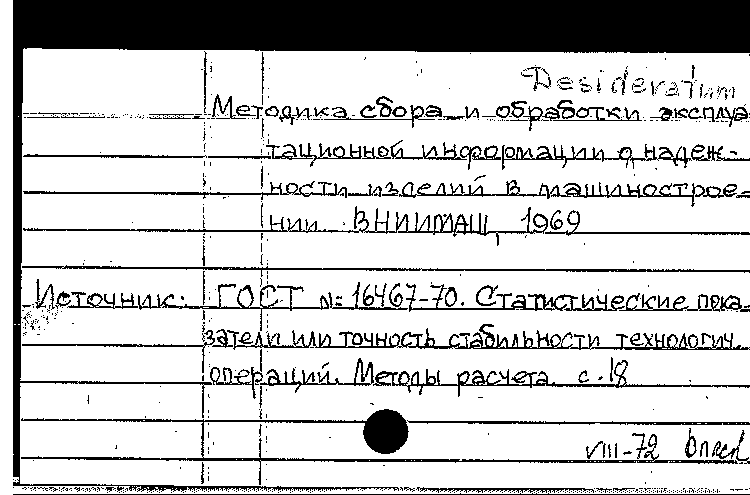 Desideratum
Методика сбора и обработки эксплуа-
тационной информации о надеж-
ности изделий в машинострое-
нии. ВНИИМАШ, 1969
Источник: ГОСТ №16467-70. Статистические пока-
затели или точность стабильности технологич.
операций. Методы расчета. с.18
VIII-72